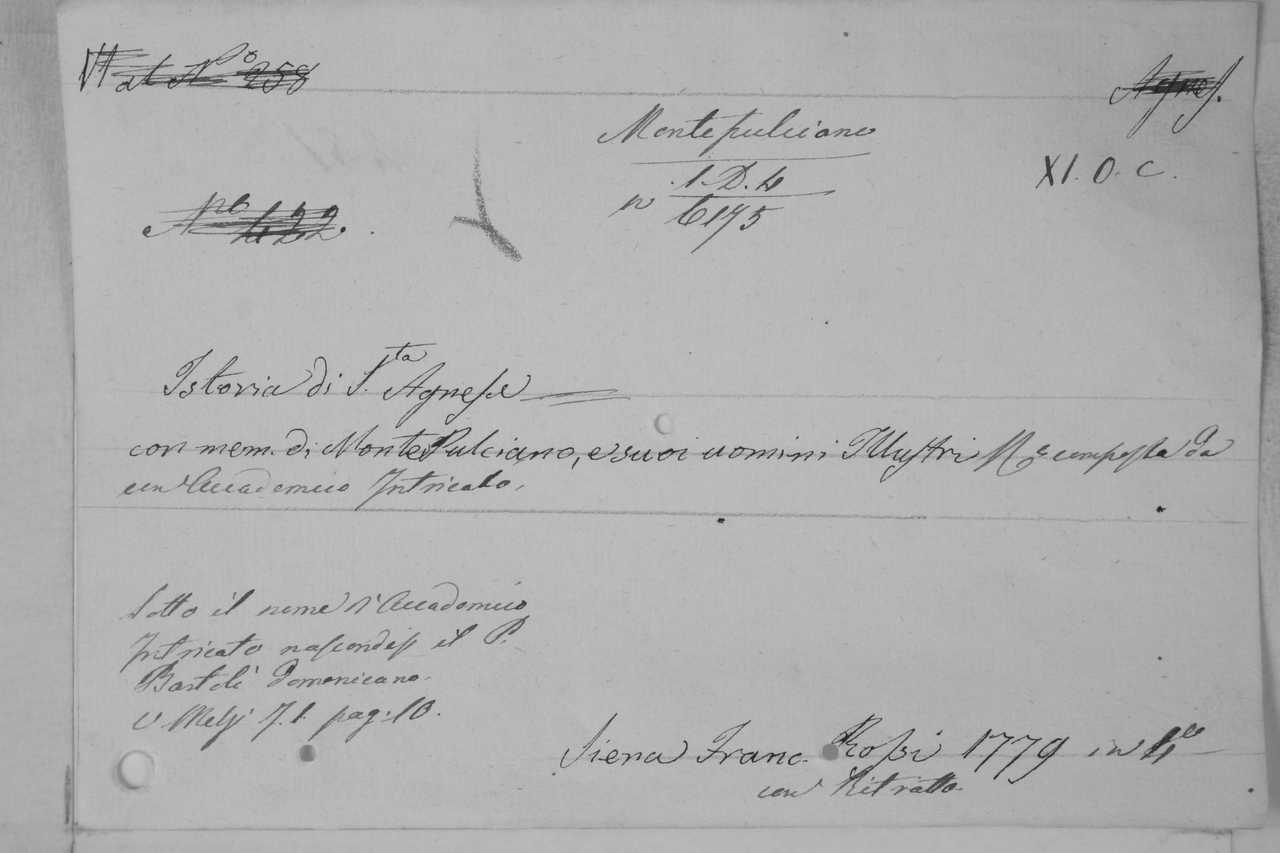 al N.o 258
Agnes.
Montepulciano
XI. O. C.
1. D. 4
N.o 422.
n 6175
Istoria di S.ta Agnese
con mem. di Monte Pulciano, e suoi uomini Illustri composta da
un Accademico Intricato.
Sotto il nome d'Accademico
Intricato nascondesi il P.
Bartoli Domenicano.
V. Melzi T. 1. pag: 10.
Siena Franc. Rossi 1779 in 4.o
con Ritratto